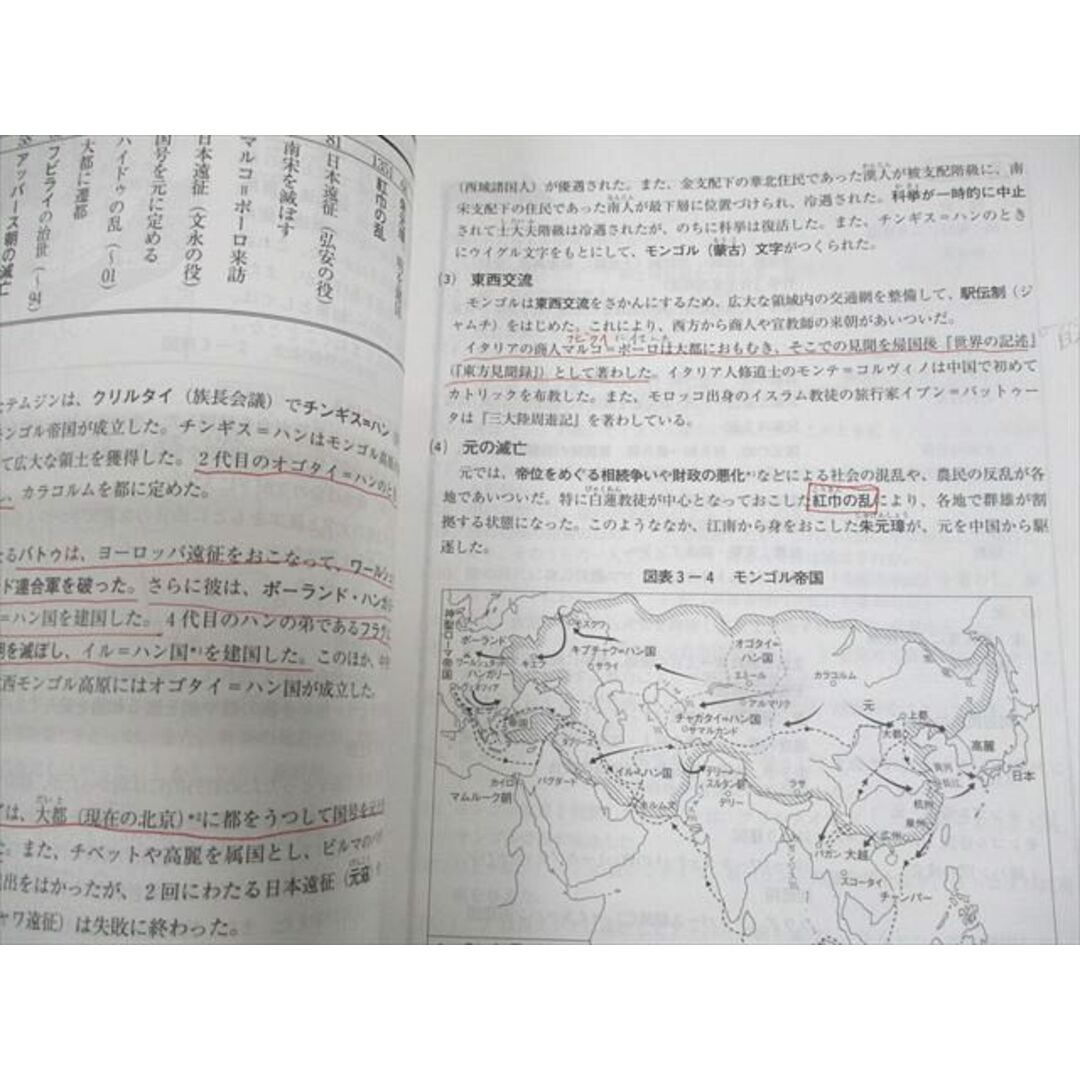 紅巾の乱
1351
81 日本遠征（弘安の役）
南宋を滅ぼす
マルコ＝ポーロ来訪
日本遠征（文永の役）
国号を元に定める
ハイドゥの乱（～01）
大都に遷都
フビライの治世（～94）
アッバース朝の滅亡
テムジンは、クリルタイ（族長会議）でチンギス＝ハン
モンゴル帝国が成立した。チンギス＝ハンはモンゴル高原
て広大な領土を獲得した。2代目のオゴタイ＝ハンのとき
し、カラコルムを都に定めた。
るバトゥは、ヨーロッパ遠征をおこなって、ワールシュ
ド連合軍を破った。さらに彼は、ポーランド・ハンガ
＝ハン国を建国した。4代目のハンの弟であるフラグ
朝を滅ぼし、イル＝ハン国を建国した。このほか、中
西モンゴル高原にはオゴタイ＝ハン国が成立した。
は、大都（現在の北京）に都をうつして国号を元
た。また、チベットや高麗を属国とし、ビルマの
出をはかったが、2回にわたる日本遠征（元寇
ャワ遠征）は失敗に終わった。
（西域諸国人）が優遇された。また、金支配下の華北住民であった漢人が被支配階級に、南
宋支配下の住民であった南人が最下層に位置づけられ、冷遇された。科挙が一時的に中止
されて士大夫階級は冷遇されたが、のちに科挙は復活した。また、チンギス＝ハンのとき
にウイグル文字をもとにして、モンゴル（蒙古）文字がつくられた。
(3) 東西交流
モンゴルは東西交流をさかんにするため、広大な領域内の交通網を整備して、駅伝制（ジ
ャムチ）をはじめた。これにより、西方から商人や宣教師の来朝があいついだ。
フビライに
イタリアの商人マルコ＝ポーロは大都におもむき、そこでの見聞を帰国後『世界の記述』
（『東方見聞録』）として著わした。イタリア人修道士のモンテ＝コルヴィノは中国で初めて
カトリックを布教した。また、モロッコ出身のイスラム教徒の旅行家イブン＝バットゥー
タは『三大陸周遊記』を著わしている。
(4) 元の滅亡
元では、帝位をめぐる相続争いや財政の悪化などによる社会の混乱や、農民の反乱が各
地であいついだ。特に白蓮教徒が中心となっておこした紅巾の乱により、各地で群雄が割
拠する状態になった。このようななか、江南から身をおこした朱元璋が、元を中国から駆
逐した。
図表3－4 モンゴル帝国
神聖ローマ帝国
ポーランド
モスクワ
ワールシュタット
ハンガリー
キエフ
キプチャク＝ハン国
サライ
オゴタイ＝
ハン国
エミール
カラコルム
アルマリク
チャガタイ＝ハン国
サマルカンド
元
上都
大都
高麗
日本
カイロ
バグダード
マムルーク朝
イル＝ハン国
ホルムズ
デリー＝
スルタン朝
デリー
ラサ
杭州
泉州
広州
パガン
大越
スコータイ
チャンパー